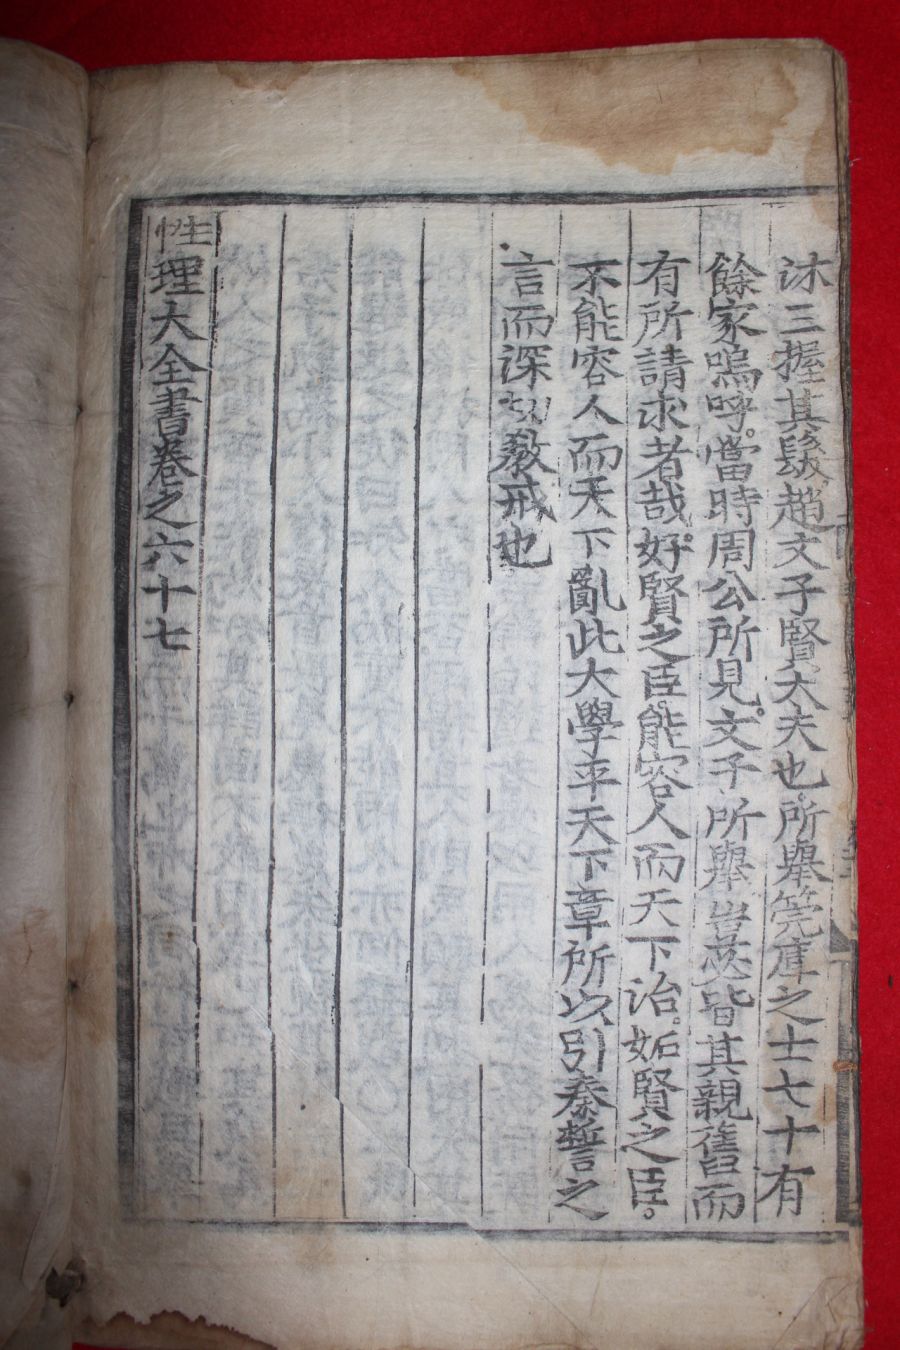 沐三握其髮趙文子賢大夫也所舉筦庫之士七十有
餘家嗚呼當時周公所見文子所舉豈盡皆其親舊而
有所請求者哉好賢之臣能容人而天下治妬賢之臣
不能容人而天下亂此大學平天下章所以引秦誓之
言而深切敎戒也
性理大全書卷之六十七